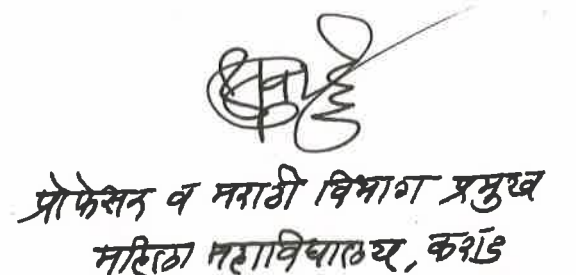 प्रोफेसर व मराठी विभाग प्रमुख
महिला महाविद्यालय, कराड